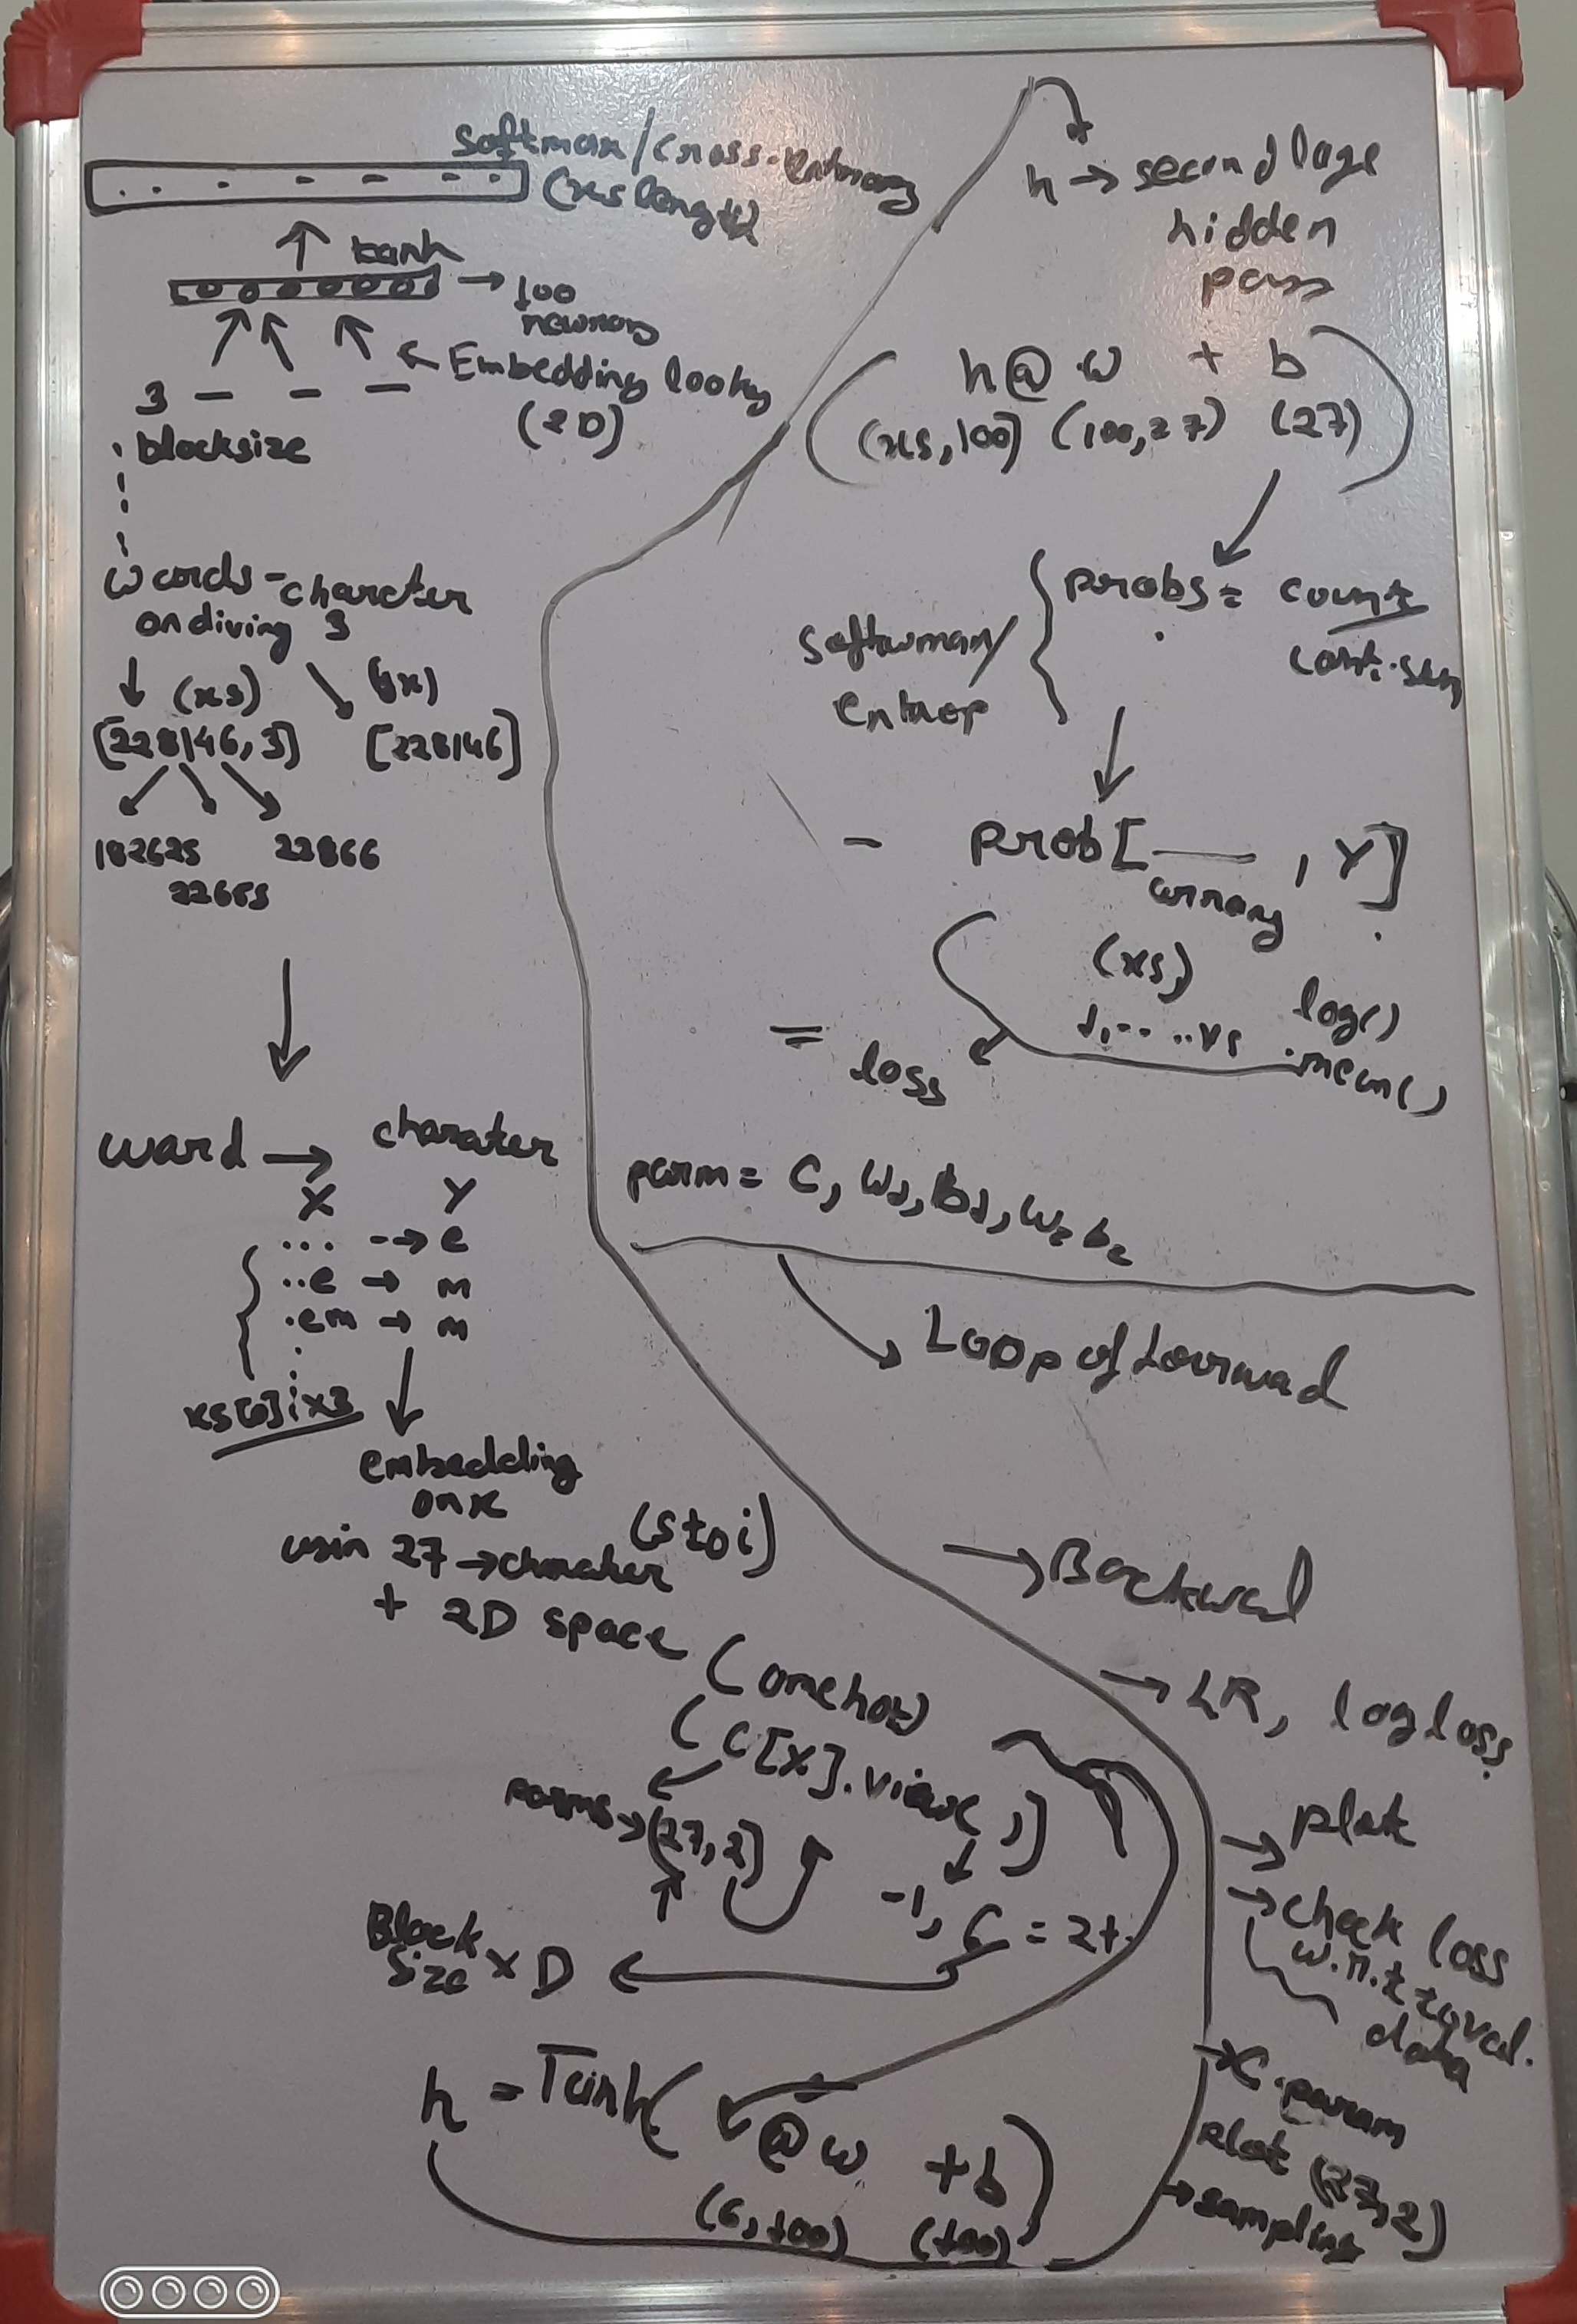 softmax/cross-entropy
(xs length)
↑ tanh
→ 100
neurons
3 — — — ← Embedding lookup
(2D)
blocksize
words - charcter
on diving 3
↓ (xs) ↘ (yx)
[228146, 3] [228146]
182625 22866
22655
ward → charater
X Y
... --> e
..e → m
.em → m
xs[0] i x3
embedding
on x
usin 27 → charater (stoi)
+ 2D space
(onehot)
(C[X].view( , )]
parms → (27,2]
-1, 6 = 2+.
Block
Size x D
h = Tanh( @ w + b )
(6,100) (100)
h → second laye
hidden
pass
( h@ w + b )
(xs,100) (100,27) (27)
softwmax/
entrop
{ probs = counts
count.sum
- Prob[ ____ , Y]
(xs)
1, .. .. xs log()
.mean()
= loss
parm = C, W1, b1, W2 b2
Loop of forward
→ Backwad
→ LR, logloss.
→ plot
→ check loss
w.r.t
data
→ C.param
plot (27,2)
→ sampling